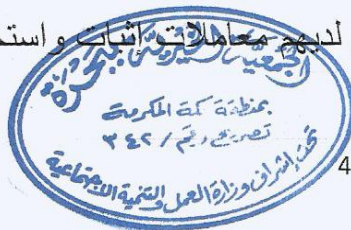 لديهم معاملات إثبات و استم
الجمعية الخيرية ببحرة
بمنطقة مكة المكرمة
تصريح رقم / ٣٤٢
تحت إشراف وزارة العمل والتنمية الاجتماعية
4